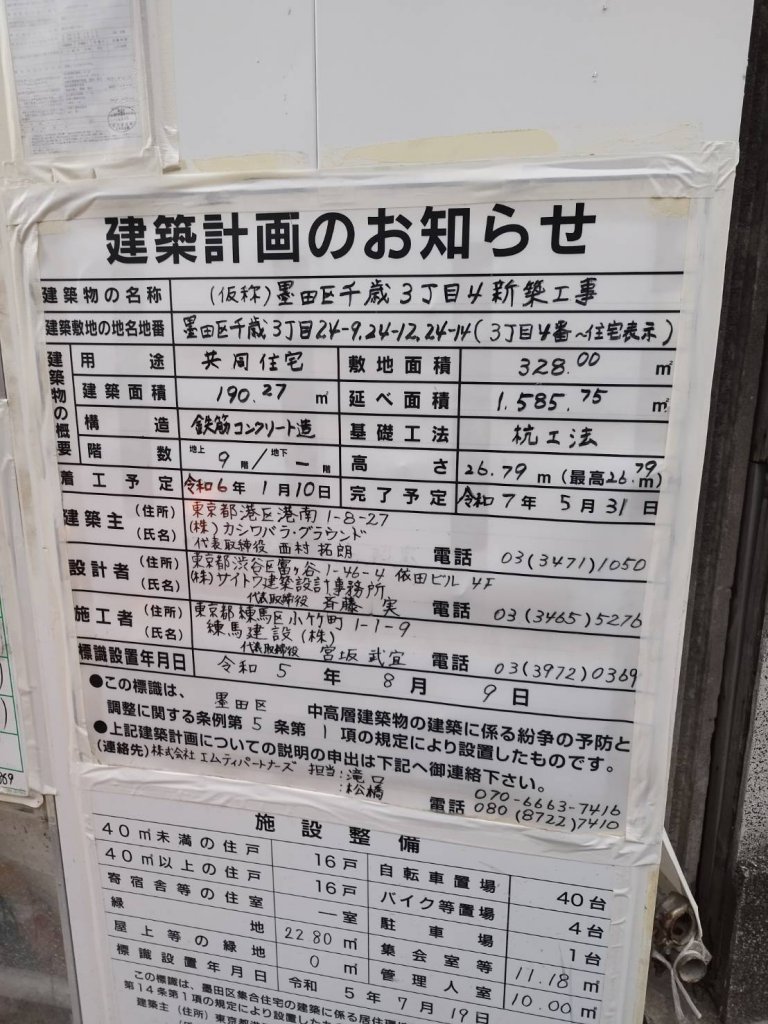 建築計画のお知らせ
建築物の名称 (仮称)墨田区千歳3丁目4新築工事
建築敷地の地名地番 墨田区千歳3丁目24-9,24-12,24-14(3丁目4番~住宅表示)
建築物の概要
用途 共同住宅 敷地面積 328.00 ㎡
建築面積 190.27 ㎡ 延べ面積 1,585.75 ㎡
構造 鉄筋コンクリート造 基礎工法 杭工法
階数 地上 9階/地下 一階 高さ 26.79 m (最高26.79m)
着工予定 令和6年 1月10日 完了予定 令和7年 5月31日
建築主 (住所) 東京都港区港南1-8-27
(氏名) (株)カシワバラ・グラウンド
代表取締役 西村 拓朗 電話 03(3471)1050
設計者 (住所) 東京都渋谷区富ヶ谷1-46-4 依田ビル 4F
(氏名) (株)サイトウ建築設計事務所
代表取締役 斉藤 実 電話 03(3465)5276
施工者 (住所) 東京都練馬区小竹町1-1-9
(氏名) 練馬建設(株)
代表取締役 宮坂 武宜 電話 03(3972)0369
標識設置年月日 令和 5 年 8 月 9 日
●この標識は、 墨田区 中高層建築物の建築に係る紛争の予防と
調整に関する条例第 5 条第 1 項の規定により設置したものです。
●上記建築計画についての説明の申出は下記へ御連絡下さい。
(連絡先)株式会社 エムティパートナーズ 担当:滝口 070-6663-7416
:松橋 電話 080(8722)7410
施設整備
40㎡未満の住戸 16戸 自転車置場 40台
40㎡以上の住戸 16戸 バイク等置場 4台
寄宿舎等の住室 一室 駐車場 1台
緑地 22.80 ㎡ 集会室等 11.18㎡
屋上等の緑地 0 ㎡ 管理人室 10.00㎡
標識設置年月日 令和 5年 7月 19日
この標識は、墨田区集合住宅の建築に係る居住環
第14条第1項の規定により設置したもの
建築主 (住所)東京都港